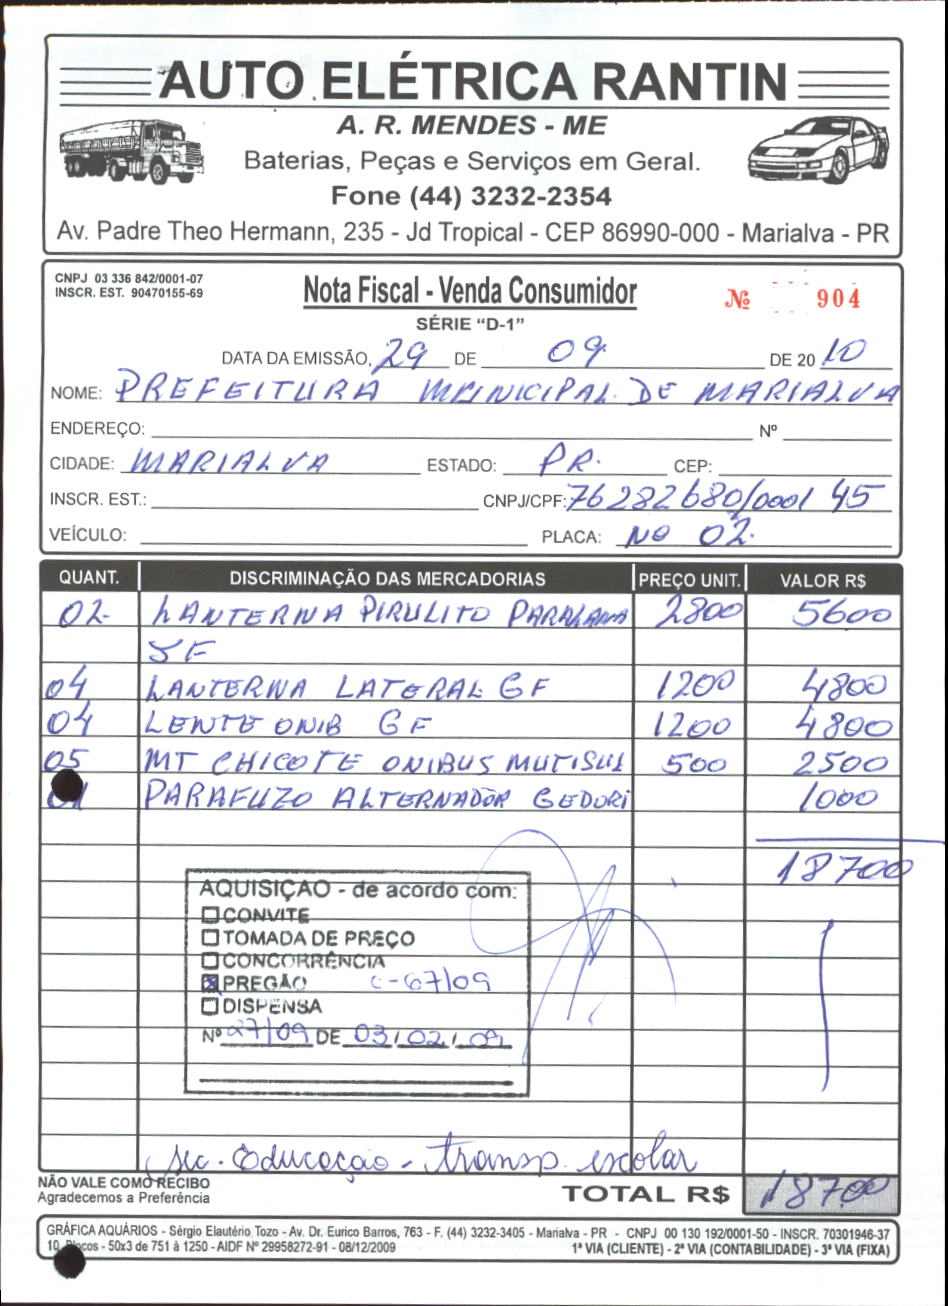 AUTO ELÉTRICA RANTIN
A. R. MENDES - ME
Baterias, Peças e Serviços em Geral.
Fone (44) 3232-2354
Av. Padre Theo Hermann, 235 - Jd Tropical - CEP 86990-000 - Marialva - PR
CNPJ 03 336 842/0001-07
INSCR. EST. 90470155-69
Nota Fiscal - Venda Consumidor
Nº 904
SÉRIE "D-1"
DATA DA EMISSÃO, 29 DE 09 DE 2010
NOME: PREFEITURA MUNICIPAL DE MARIALVA
ENDEREÇO: Nº
CIDADE: MARIALVA ESTADO: PR. CEP:
INSCR. EST.: CNPJ/CPF: 76282680/0001 45
VEÍCULO: PLACA: NO 02
QUANT. DISCRIMINAÇÃO DAS MERCADORIAS PREÇO UNIT. VALOR R$
02 LANTERNA PIRULITO PARALAMA 2800 5600
04 LANTERNA LATERAL GF 1200 4800
04 LENTE ONIB GF 1200 4800
05 MT CHICOTE ONIBUS 500 2500
01 PARAFUZO ALTERNADOR 1000
18700
AQUISIÇÃO - de acordo com:
CONVITE
TOMADA DE PREÇO
CONCORRÊNCIA
PREGÃO C-67/09
DISPENSA
Nº 27/09 DE 03/02/09
Sec. Educação - transp. escolar
NÃO VALE COMO RECIBO
Agradecemos a Preferência
TOTAL R$ 18700
GRÁFICA AQUÁRIOS - Sérgio Elautério Tozo - Av. Dr. Eurico Barros, 763 - F. (44) 3232-3405 - Marialva - PR - CNPJ 00 130 192/0001-50 - INSCR. 70301946-37
10 Blocos - 50x3 de 751 à 1250 - AIDF Nº 29958272-91 - 08/12/2009 1ª VIA (CLIENTE) - 2ª VIA (CONTABILIDADE) - 3ª VIA (FIXA)